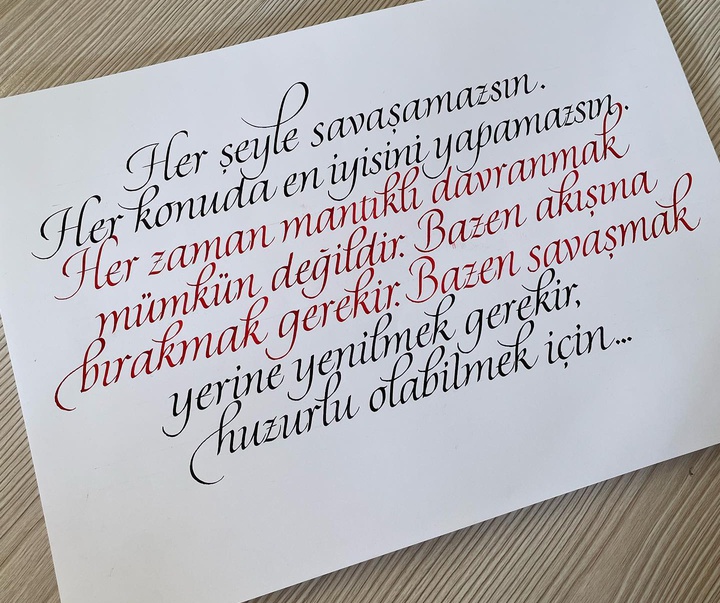 Her şeyle savaşamazsın.
Her konuda en iyisini yapamazsın.
Her zaman mantıklı davranmak
mümkün değildir. Bazen akışına
bırakmak gerekir. Bazen savaşmak
yerine yenilmek gerekir,
huzurlu olabilmek için...